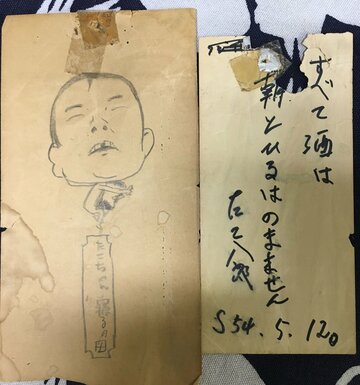 すべて酒は
朝とひるはのまません
たこ八郎
S54.5.12。
たこちゃん 寝るの図